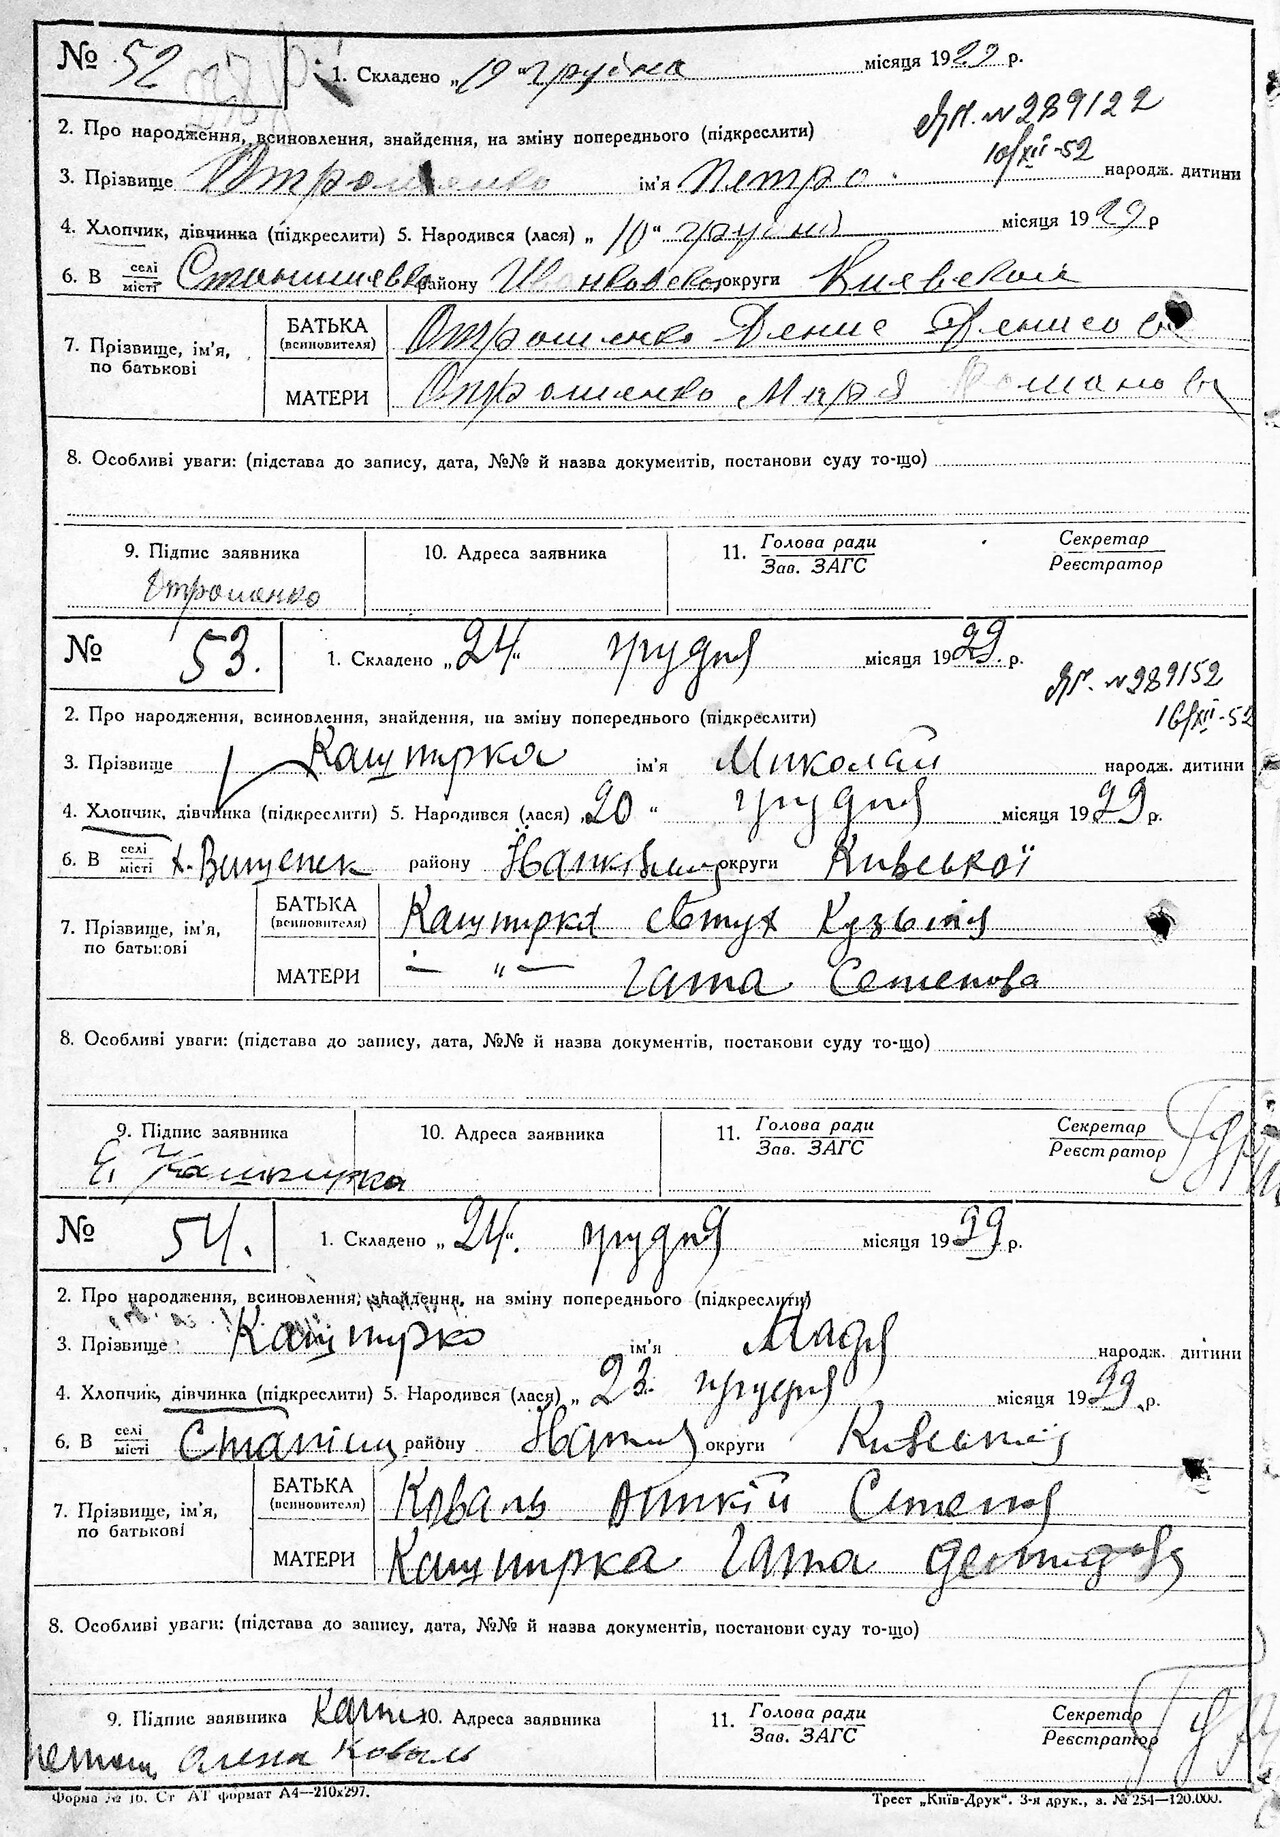 № 52
1. Складено „19" грудня місяця 1929 р.
2. Про народження, всиновлення, знайдення, на зміну попереднього (підкреслити)
№289122
10/XII-52
3. Прізвище Отрошенко ім'я Петро народж. дитини
4. Хлопчик, дівчинка (підкреслити) 5. Народився (лася) „10" грудня місяця 1929 р
6. В селі місті району округи Киевской
7. Прізвище, ім'я, по батькові
БАТЬКА (всиновителя) Отрошенко Денис Денисов
МАТЕРИ Отрошенко Мария Романов
8. Особливі уваги: (підстава до запису, дата, №№ й назва документів, постанови суду то-що)
9. Підпис заявника 10. Адреса заявника 11. Голова ради Зав. ЗАГС Секретар Реєстратор
Отрошенко
№ 53.
1. Складено „24" грудня місяця 1929. р.
№289152
16/XII-52
2. Про народження, всиновлення, знайдення, на зміну попереднього (підкреслити)
3. Прізвище Кащпирка ім'я Миколай народж. дитини
4. Хлопчик, дівчинка (підкреслити) 5. Народився (лася) „20" грудня місяця 1929 р.
6. В селі місті району округи Київської
7. Прізвище, ім'я, по батькові
БАТЬКА (всиновителя) Кащпирка Євтух Кузьмів
МАТЕРИ — „ — Гапа Семенова
8. Особливі уваги: (підстава до запису, дата, №№ й назва документів, постанови суду то-що)
9. Підпис заявника 10. Адреса заявника 11. Голова ради Зав. ЗАГС Секретар Реєстратор
Є. Кашпирка
№ 54.
1. Складено „24". грудня місяця 1929 р.
2. Про народження, всиновлення, знайдення, на зміну попереднього (підкреслити)
3. Прізвище Кащпирко ім'я народж. дитини
4. Хлопчик, дівчинка (підкреслити) 5. Народився (лася) „23. грудня місяця 1929 р.
6. В селі місті району округи
7. Прізвище, ім'я, по батькові
БАТЬКА (всиновителя) Коваль
МАТЕРИ Кащпирка Гапа
8. Особливі уваги: (підстава до запису, дата, №№ й назва документів, постанови суду то-що)
9. Підпис заявника 10. Адреса заявника 11. Голова ради Зав. ЗАГС Секретар Реєстратор
Олена Коваль
Форма № 16. Ст АТ формат А4—210х297.
Трест „Київ-Друк". 3-я друк., з. № 254—120.000.